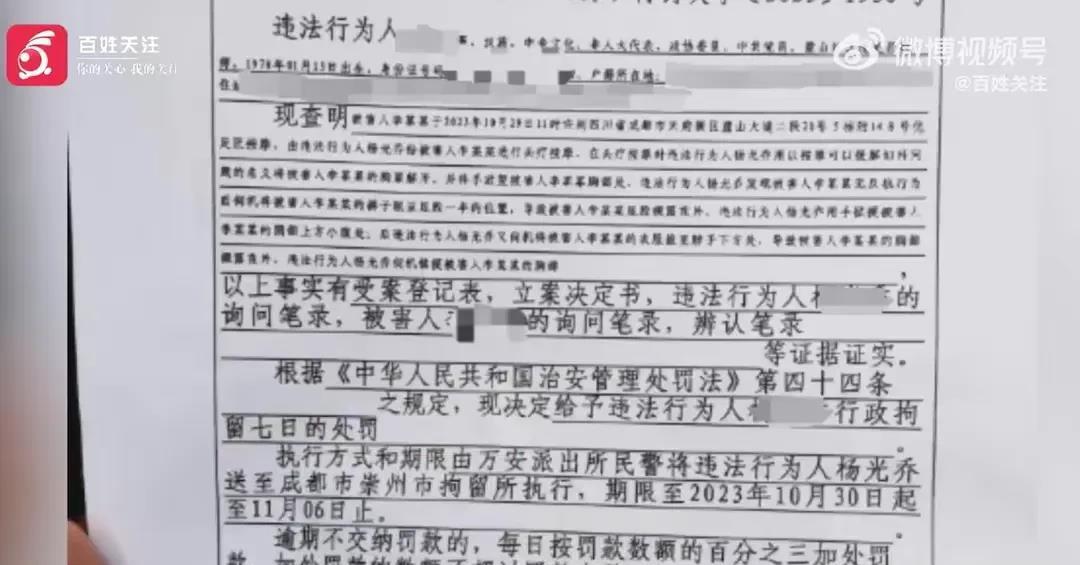 百姓关注
你的关心 我的关注
微博视频号
@百姓关注
违法行为人
1978年01月15日出生，身份证号码 户籍所在地：
住
现查明被害人李某某于2023年10月29日11时许到四川省成都市天府新区麓山大道二段 号5栋附148号优
足匠按摩，由违法行为人杨光乔给被害人李某某进行头疗按摩。在头疗按摩时违法行为人杨光乔 以按摩可以缓解妇科问
题的名义将被害人李某某的胸罩解开，后将手放至被害人李某某胸部处。违法行为人杨光乔发现被害人李某某无反抗行为
后伺机将被害人李某某的裤子脱至屁股一半的位置，导致被害人李某某屁股裸露在外。违法行为人杨光乔用手 被害人
李某某的胸部上方小腹处；后违法行为人杨光乔又伺机将被害人李某某的衣服 至脖子下方处，导致被害人李某某的胸部
裸露在外，违法行为人杨光乔伺机 被害人李某某的胸部
，
以上事实有受案登记表，立案决定书，违法行为人 的
询问笔录，被害人 的询问笔录，辨认笔录
等证据证实。
根据《中华人民共和国治安管理处罚法》第四十四条
之规定，现决定给予违法行为人 行政拘
留七日的处罚
。
执行方式和期限由万安派出所民警将违法行为人杨光乔
送至成都市崇州市拘留所执行，期限至2023年10月30日起
至11月06日止。
逾期不交纳罚款的，每日按罚款数额的百分之三加处罚